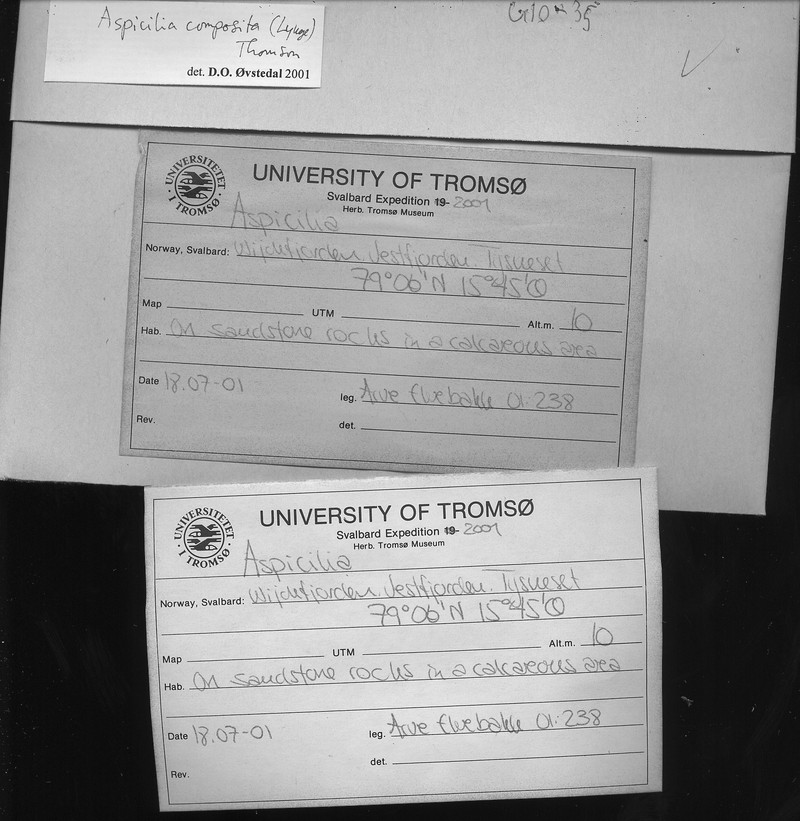 Aspicilia composita (Lynge)
Thomson
det. D.O. Øvstedal 2001
G10 × 35
UNIVERSITETET I TROMSØ
UNIVERSITY OF TROMSØ
Svalbard Expedition 19- 2001
Herb. Tromsø Museum
Aspicilia
Norway, Svalbard: Wijdefjorden, Vestfjorden.
79°06'N 15°45'Ø
Map UTM Alt.m. 10
Hab. On sandstone rocks in a calcareous area
Date 18.07-01
leg. Arve Elvebakk 01:238
Rev.
det.
UNIVERSITETET I TROMSØ
UNIVERSITY OF TROMSØ
Svalbard Expedition 19- 2001
Herb. Tromsø Museum
Aspicilia
Norway, Svalbard: Wijdefjorden, Vestfjorden.
79°06'N 15°45'Ø
Map UTM Alt.m. 10
Hab. On sandstone rocks in a calcareous area
Date 18.07-01
leg. Arve Elvebakk 01:238
det.
Rev.